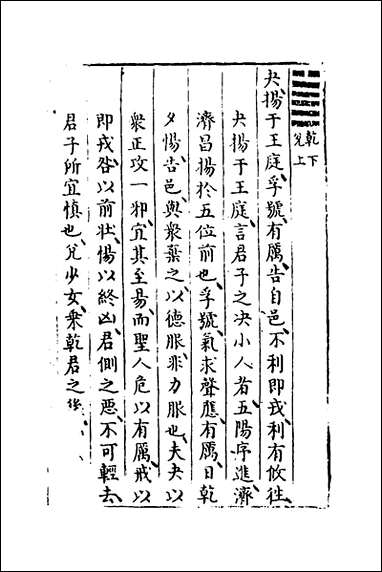 乾下
兌上
夬揚于王庭孚號有厲告自邑不利即戎利有攸往
夬揚于王庭言君子之决小人者五陽序進濟
濟昌揚於五位前也孚號氣求聲應有厲日乾
夕惕告邑與衆棄之以德服非力服也夫夬以
衆正攻一邪宜其至易而聖人危以有厲戒以
即戎咎以前壯惕以終凶君側之惡不可輕去
君子所宜慎也兌少女乗乾君之後